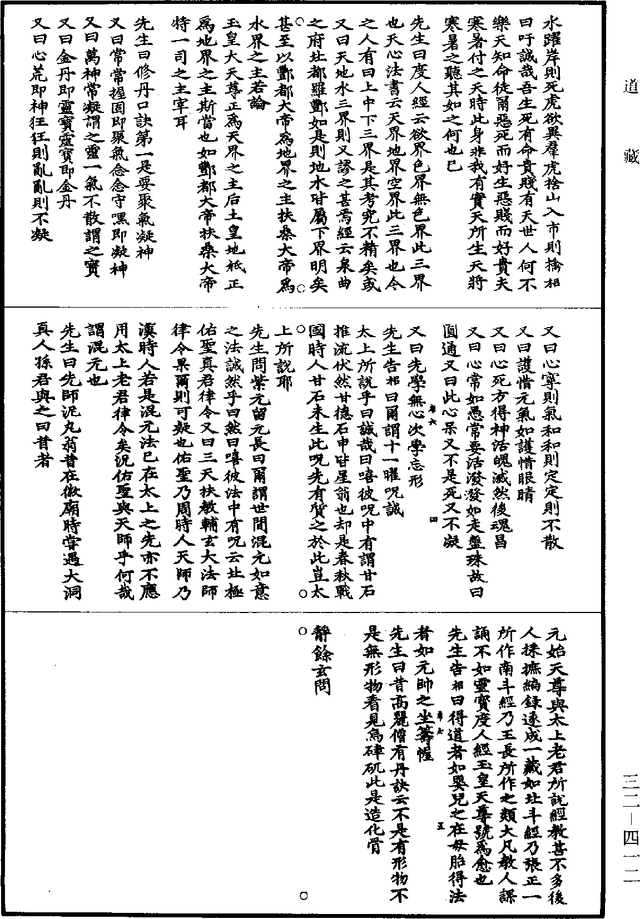 道藏
水躍岸則死虎欲異羣虎捨山入市則擒柤
曰吁誠哉吾生死有命貴賤有天世人何不
樂天知命徒爾惡死而好生惡賤而好貴夫
寒暑付之天時此身非我有實天所生天將
寒暑之聽其如之何也已
先生曰度人經云欲界色界無色界此三界
也天心法書云天界地界空界此三界也今
之人有曰上中下三界是其考究不精矣或
又曰天地水三界則又謬之甚焉經云泉曲
之府北都羅酆如是則地水皆屬下界明矣
甚至以酆都大帝為地界之主扶桑大帝為
水界之主若論
玉皇大天尊正為天界之主后土皇地祇正
為地界之主斯當也如酆都大帝扶桑大帝
特一司之主宰耳
先生曰修丹口訣第一是要聚氣凝神
又曰常常握固即聚氣念念守嘿即凝神
又曰萬神常凝謂之靈一氣不散謂之寶
又曰金丹即靈寶靈寶即金丹
又曰心荒即神狂狂則亂亂則不凝
又曰心寧則氣和和則定定則不散
又曰護惜元氣如護惜眼睛
又曰心死方得神活魄滅然後魂昌
又曰心常如愚常要活潑潑如走盤珠故曰
圓通又曰此心杲又不是死又不凝
又曰先學無心次學忘形
四
先生告柤曰爾謂十一曜呪誠
太上所說乎曰誠哉曰嘻彼呪中有謂甘石
推流伏然甘德石申皆星翁也却是春秋戰
國時人甘石未生此呪先有質之於此豈太
上所說耶
先生問紫元留元長曰爾謂世間混元如意
之法誠然乎曰然曰嘻彼法中有呪云北極
佑聖真君律令又曰三天扶教輔玄大法師
律令果爾則可疑也佑聖乃周時人天師乃
漢時人若是混元法已在太上之先亦不應
用太上老君律令矣況佑聖與天師乎何哉
謂混元也
先生曰先師泥丸翁昔在徽廟時嘗遇大洞
真人孫君與之曰昔者
元始天尊與太上老君所說經教甚不多後
人採摭編録遂成一藏如北斗經乃張正一
所作南斗經乃王長所作之類大凡教人課
誦不如靈寶度人經玉皇天尊號為愈也
先生告柤曰得道者如嬰兒之在母胎得法
五
者如元帥之坐籌幄
先生曰昔高麗僧有丹訣云不是有形物不
是無形物看見烏硨矹此是造化骨
靜餘玄問
三二—四一二